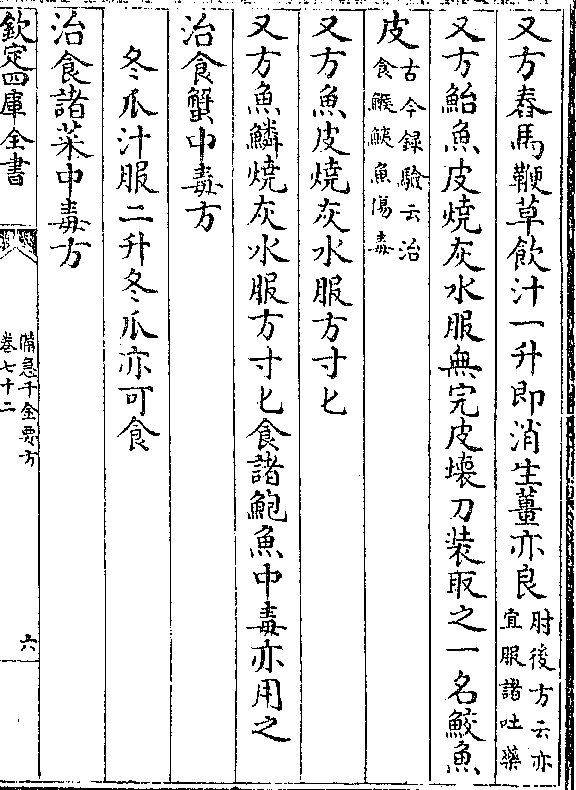 又方舂馬鞭草飲汁一升即消生薑亦良肘後方云亦宜服諸吐藥
又方鮐魚皮燒灰水服無完皮壊刀装取之一名鮫魚
皮古今録驗云治食鯸鮧魚傷毒
又方魚皮燒灰水服方寸匕
又方魚鱗燒灰水服方寸匕食諸鮑魚中毒亦用之
治食蟹中毒方
冬瓜汁服二升冬瓜亦可食
治食諸菜中毒方
欽定四庫全書
備急千金要方
卷七十二
六